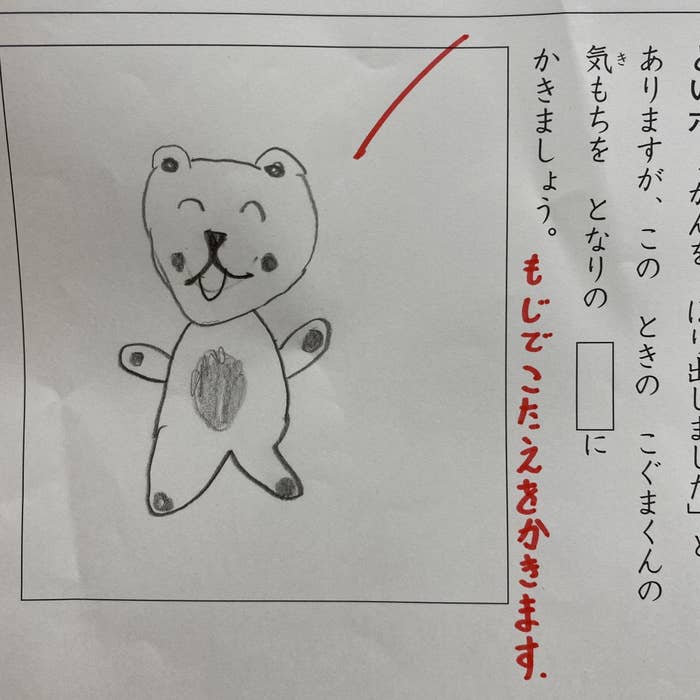 かんを ほり出しました」と
ありますが、この ときの こぐまくんの
き
気もちを となりの に
かきましょう。
もじでこたえをかきます.